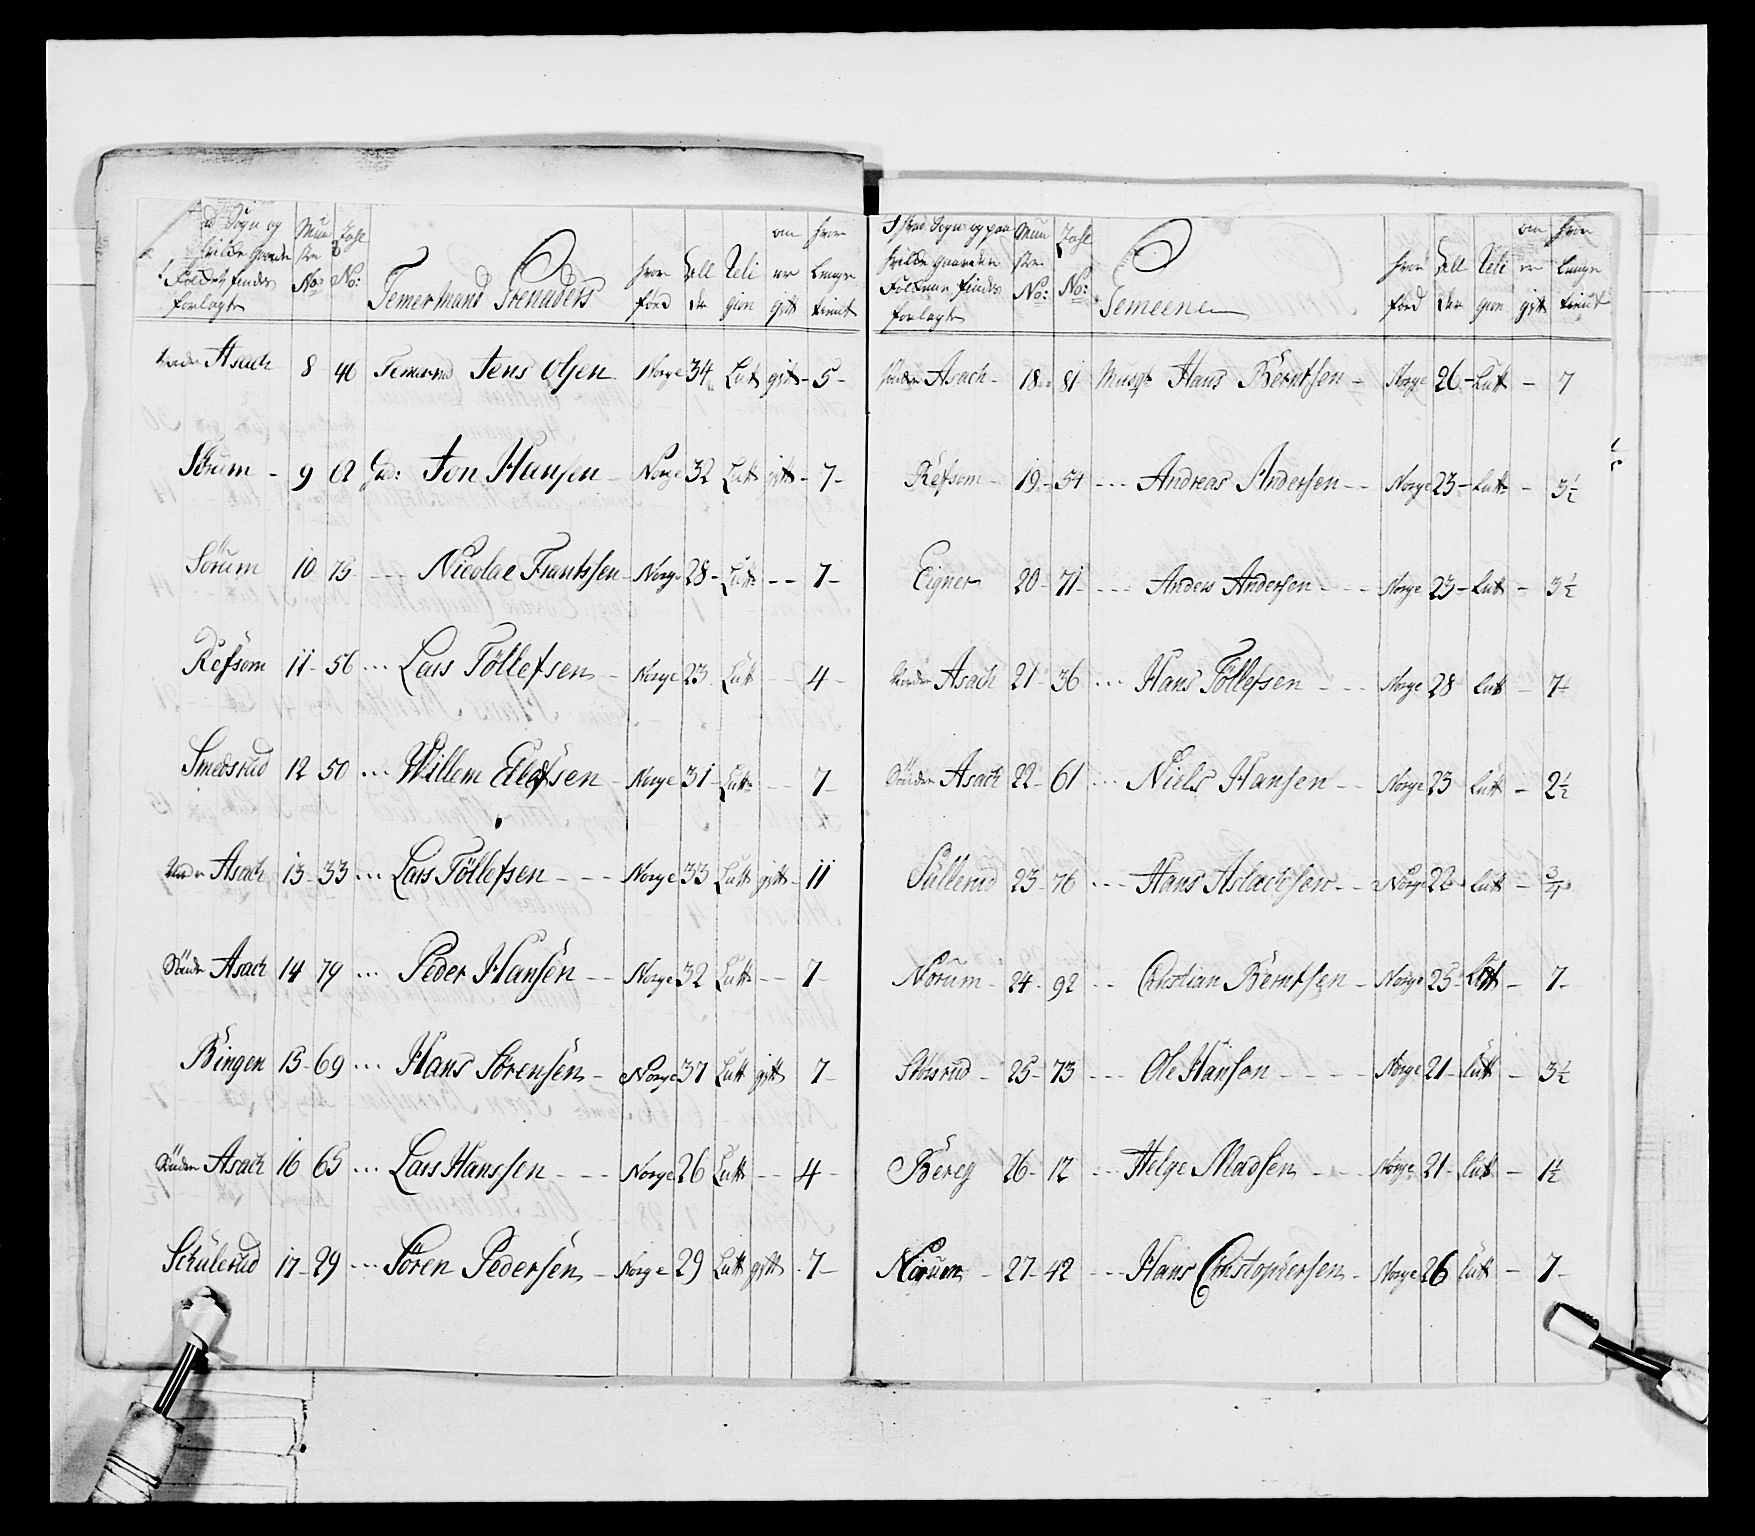 Sogn og
hvilke Gaarde
Folket findes
forlagt
Mun
stre
No:
Tahl
No:
Temermand Grenaders
hvor
fød
All
der
Reli
gion
om
er
gift
hvor
Lenge
tient
Asach 8 40 Jens Olsen Norge 34 Lut gift - 5 -
Sörum - 9 62 Gr: Jon Hansen Norge 32 Lutt gift - 7 -
Sörum 10 75 - - - Nicolai Frantssen - Norge 28 - Lutt - - 7 -
Refsom 11 - 56 ... Lars Töllefsen - Norge 23 Lutt - - 4 -
Smedsrud 12 50 ... Willem - Norge 31 - Lutt - - 7 -
Asach 13 - 33 ... Lars Töllefsen - - - Norge 33 Lutt gift - 11
Sönder Asach 14 79 ... Peder Hansen - - Norge 32 Lutt - - 7 -
Bingen 15 - 69 ... Hans Sörensen - - Norge 37 Lutt gift 7 -
Sönder Asach 16 65 ... Lars Hanssen - - - Norge 26 Lutt - - 4 -
Skülerud 17 - 29 ... Sören Pedersen - Norge 29 Lutt gift - 7 -
Sogn og paa
hvilke gaarder
Folkene findes
forlagt
Mun
stre
No:
Tahl
No:
Gemeene
hvor
fød
All
der
Reli
gion
om
er
gift
hvor
Lenge
tient
Sönder Asach - 18 - 81 Musqt Hans Berntsen - Norge 26 - Lutt - 7
Refsom - 19 - 54 ... Andreas Andersen - - Norge 23 - Lutt - 3½
Eigner 20 - 71 - ... Anders Andersen - - - Norge 23 - Lutt - 3½
Nordre Asach 21 - 36 ... Hans Töllefsen - - - Norge 28 Lutt - 7½
Sönder Asach 22 - 61 ... Niels Hansen - - Norge 23 Lutt - 2½
Süllerud 23 - 76 ... Hans Aslachsen - - Norge 22 Lutt - ¾
Norum - 24 - 92 - - Christian Berntsen - Norge 25 - Lutt - 7 -
25 - 73 - - - Ole Hansen - - - - Norge 21 - Lutt - 3½
Berg 26 - 12 - - Helge Madsen - - - Norge 21 - Lutt - 1½
Norum - 27 - 42 - - - Hans Christophersen - Norge 26 Lutt - 7 -